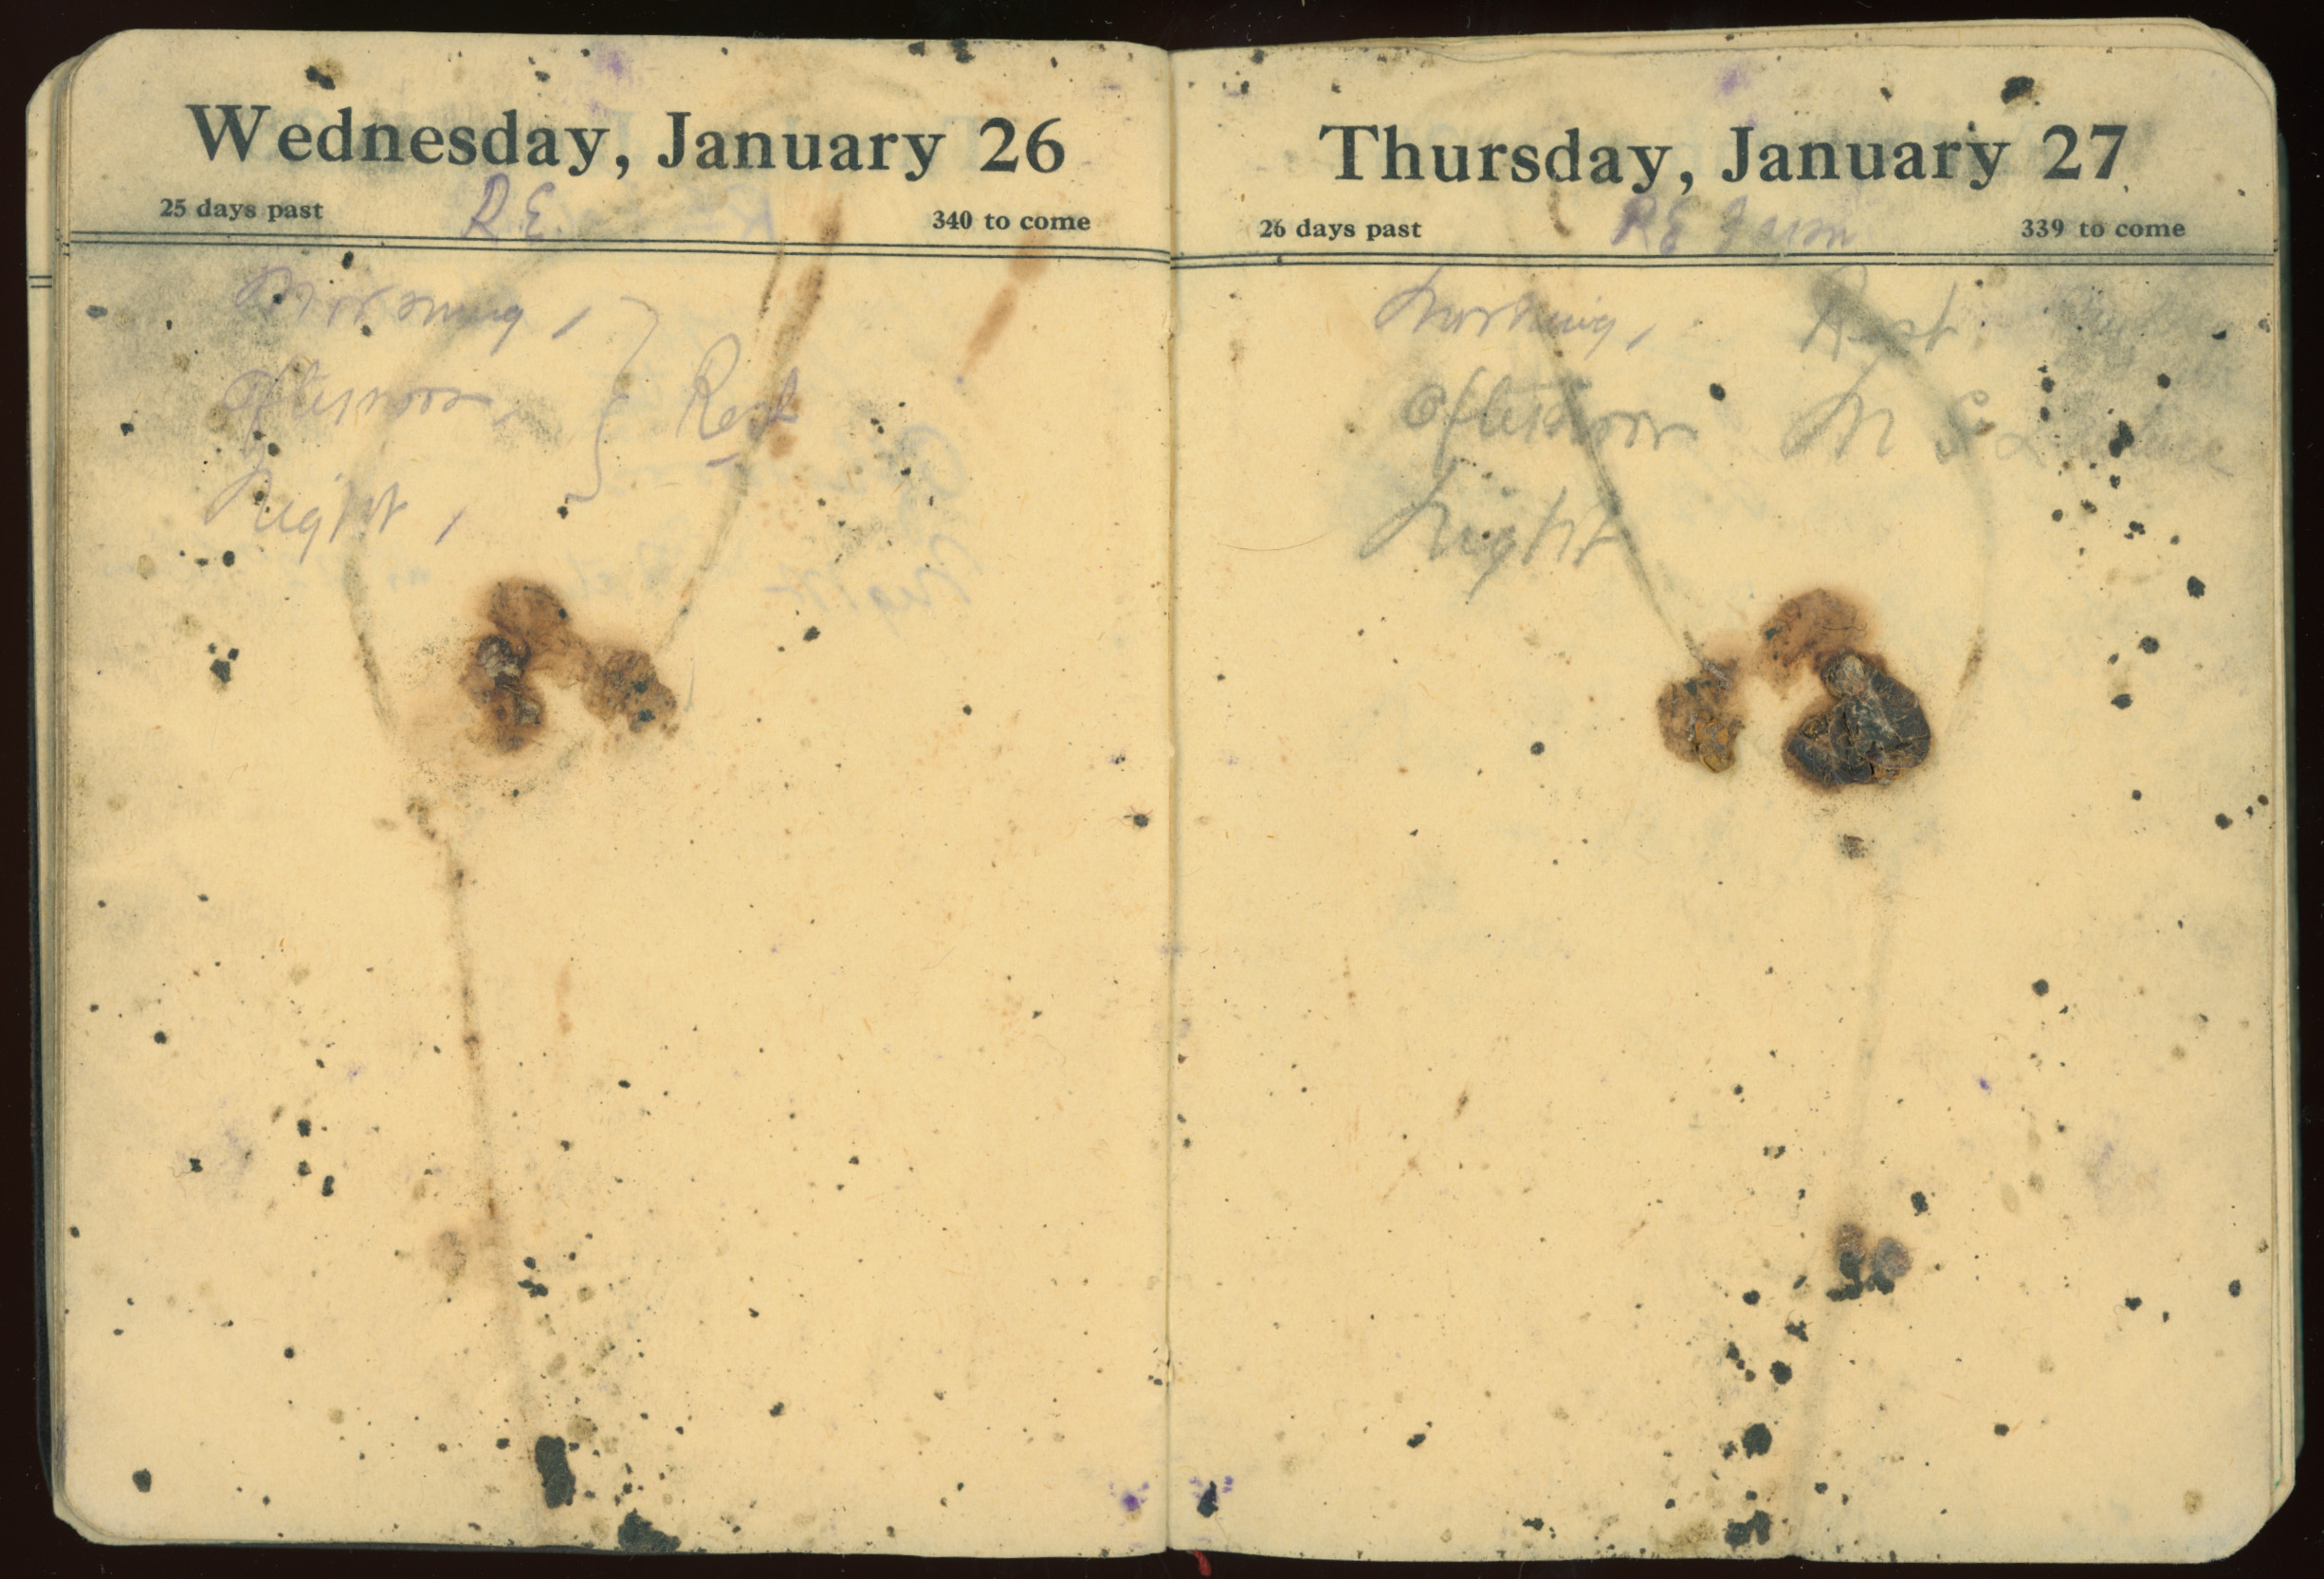 Wednesday, January 26
25 days past R.E. 340 to come
Morning,
Afternoon, Rest
Night,
Thursday, January 27
26 days past RE 339 to come
Morning, Rest.
Afternoon
Night